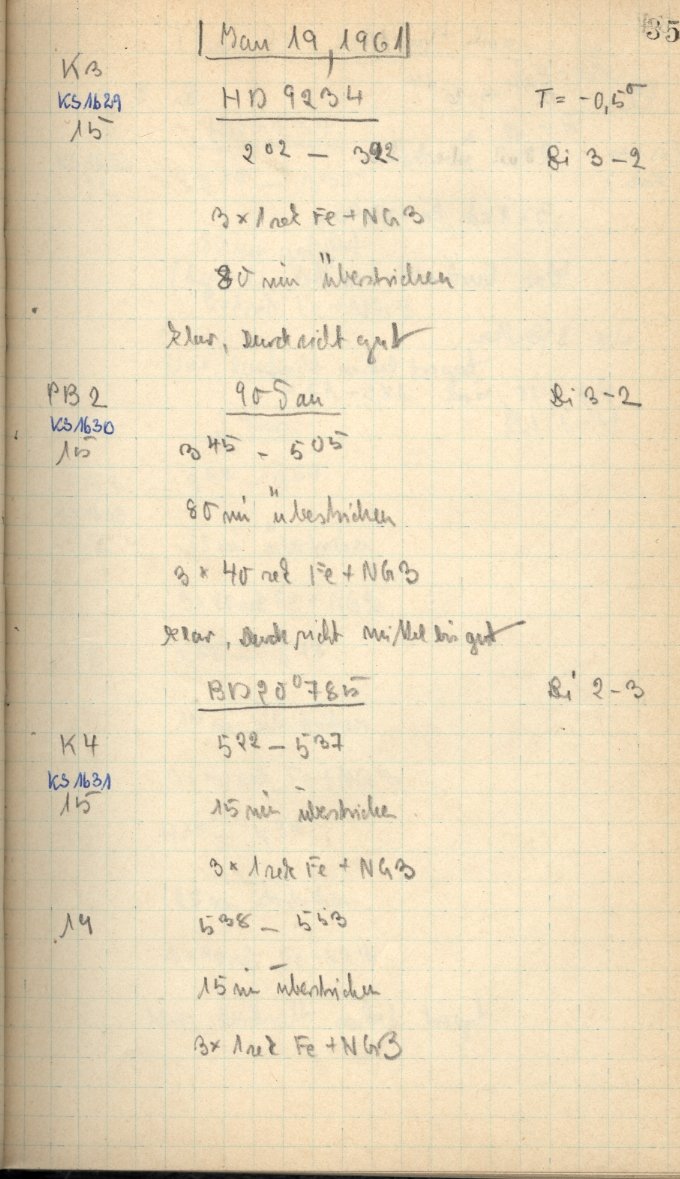 35
Jan 19, 1961
K3
KS1629
15
HD 9234 T = -0,5°
2 02 – 3 22 Bi 3-2
3 × 1 sek Fe + NG3
80 min überstrichen
klar, Durchsicht gut
PB2 90 Tau Bi 3-2
KS1630
15 3 45 - 5 05
80 min überstrichen
3 × 40 sek Fe + NG3
klar, Durchsicht mittel bis gut
BD20°785 Bi 2-3
K4 5 22 – 5 37
KS1631
15 15 min überstrichen
3 × 1 sek Fe + NG3
14 5 38 – 5 53
15 min überstrichen
3× 1 sek Fe + NG3